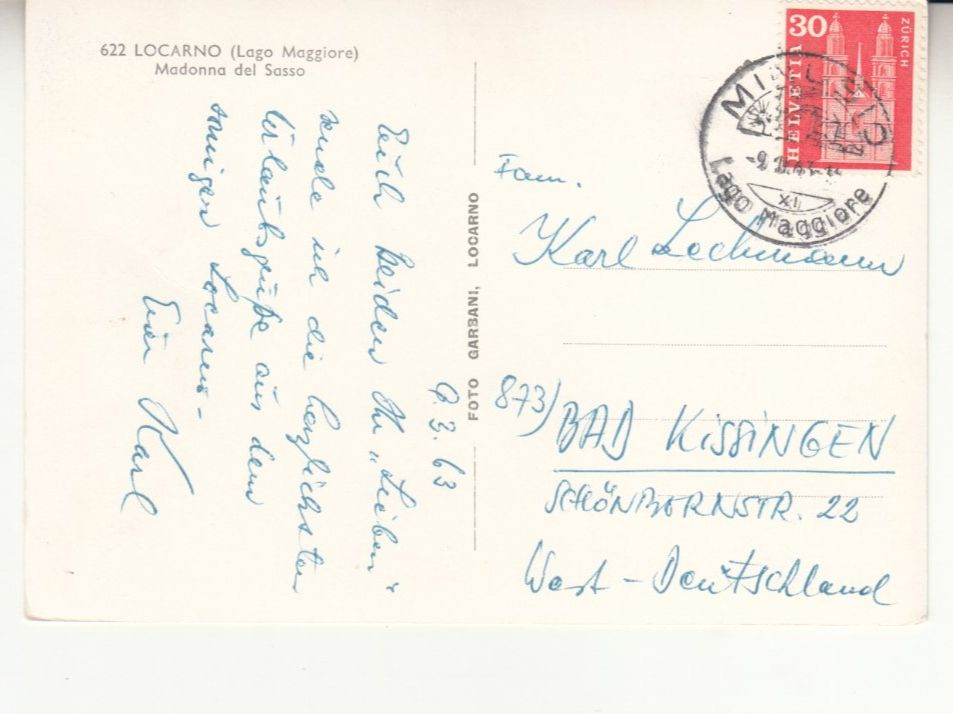 622 LOCARNO (Lago Maggiore)
Madonna del Sasso
9.3.63
Euch beiden Ihr „Lieben"
sende ich die herzlichsten
Urlaubsgrüße aus dem
sonnigen Locarno -
Euer Karl
FOTO GARBANI, LOCARNO
30
HELVETIA
ZÜRICH
Lago Maggiore
XI
Fam.
Karl Lochmann
873)
BAD KISSINGEN
SCHÖNBORNSTR. 22
West-Deutschland